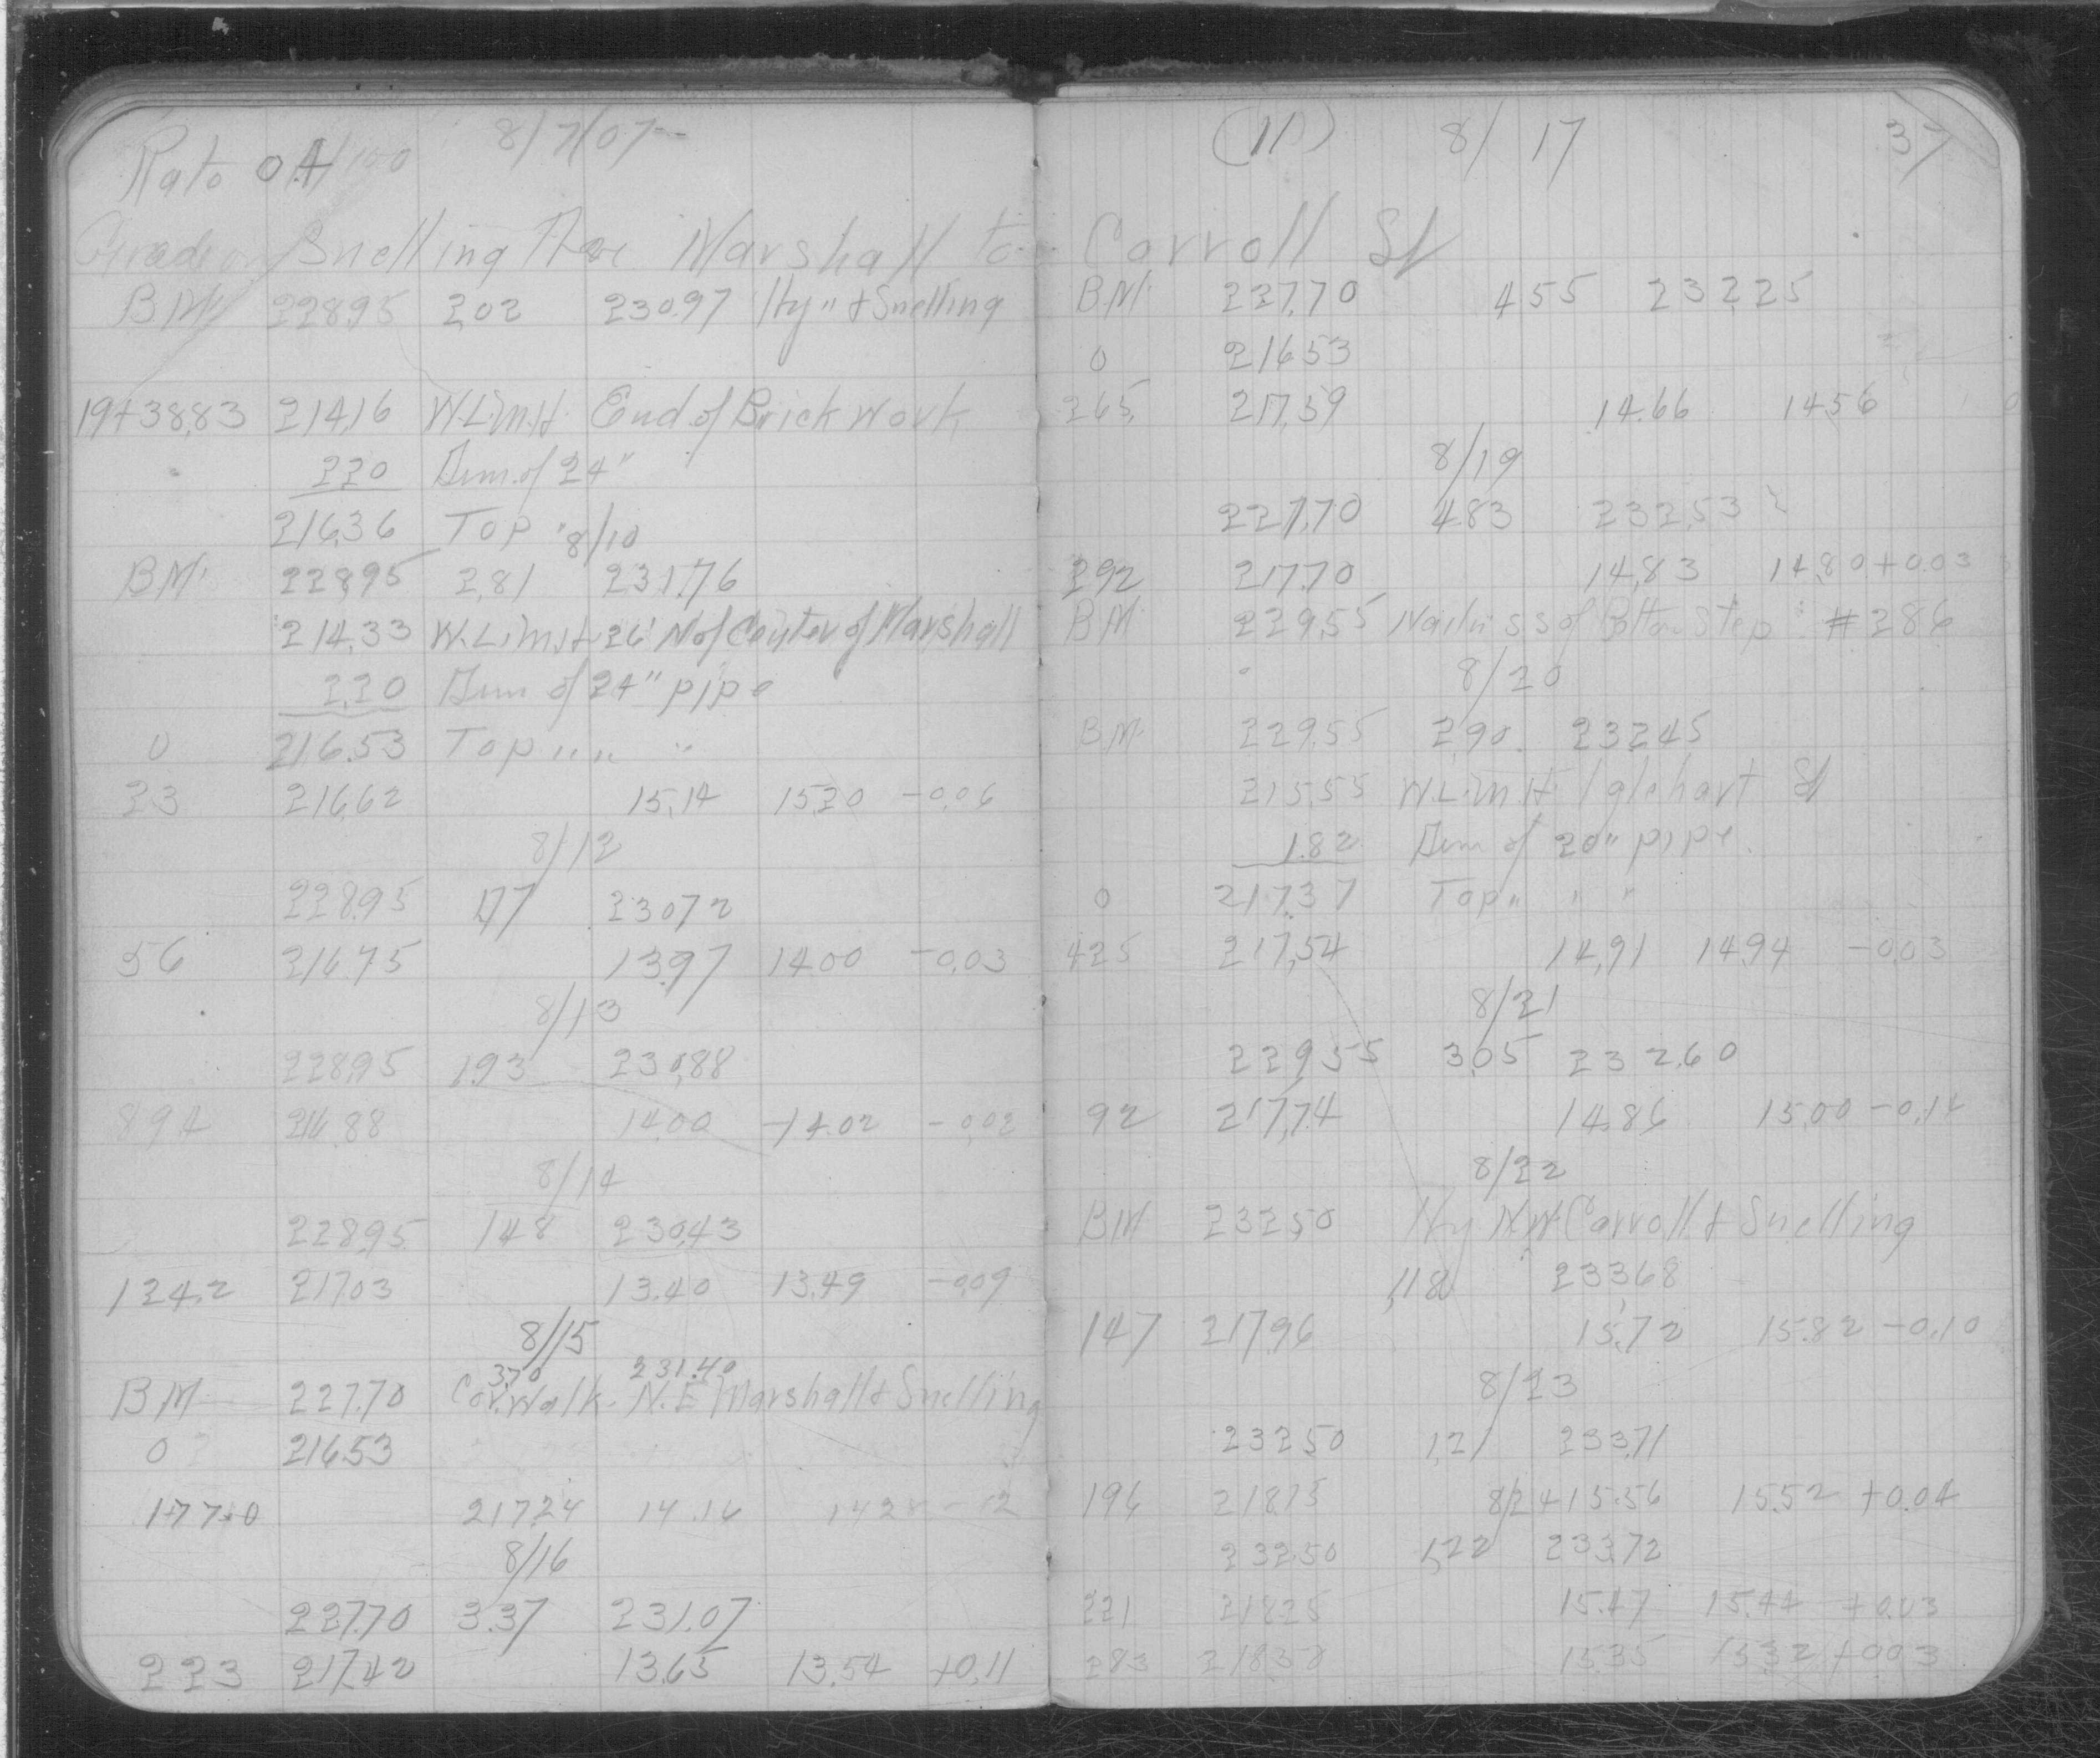 Rate 0.4/100 8/7/07
Grade on Snelling Ave Marshall to
BM 228.95 2.02 230.97 Hy" & Snelling
19+38.83 214.16 W.L.M.H. End of Brick Work
2.20 Dim. of 24"
216.36 Top "
8/10
BM. 228.95 2.81 231.76
214.33 W.L.M.H 26' N of Center of Marshall
2.20 Dim of 24" pipe
0 216.53 Top " " "
23 216.62 15.14 15.20 -0.06
8/12
228.95 1.77 230.72
56 216.75 13.97 14.00 -0.03
8/13
228.95 1.93 230.88
89.4 216.88 14.00 14.02 -0.02
8/14
228.95 1.48 230.43
124.2 217.03 13.40 13.49 -0.09
8/15
3.70 231.40
BM 227.70 Cor. Walk. N.E Marshall & Snelling
0 216.53
1+77.0 217.24 14.16 14.28 -.12
8/16
227.70 3.37 231.07
223 217.42 13.65 13.54 +0.11
(11) 8/17 37
Carroll St
BM. 227.70 4.55 232.25
0 216.53
265. 217.59 14.66 14.56
8/19
227.70 4.83 232.53
292 217.70 14.83 14.80 +0.03
BM. 229.55 Nail in S S of Bottom Step #286
8/20
BM. 229.55 2.90 232.45
215.55 W.L.M.H. Iglehart St
1.82 Dim of 20" pipe.
0 217.37 Top " " "
42.5 217.54 14.91 14.94 -0.03
8/21
229.55 3.05 232.60
92 217.74 14.86 15.00 -0.14
8/22
BM 232.50 Hy N.W. Carroll & Snelling
1.18 233.68
147 217.96 15.72 15.82 -0.10
8/23
232.50 1.21 233.71
196 218.15 15.56 15.52 +0.04
8/24
232.50 1.22 233.72
221 218.25 15.47 15.44 +0.03
283 218.38 15.35 15.32 +0.03